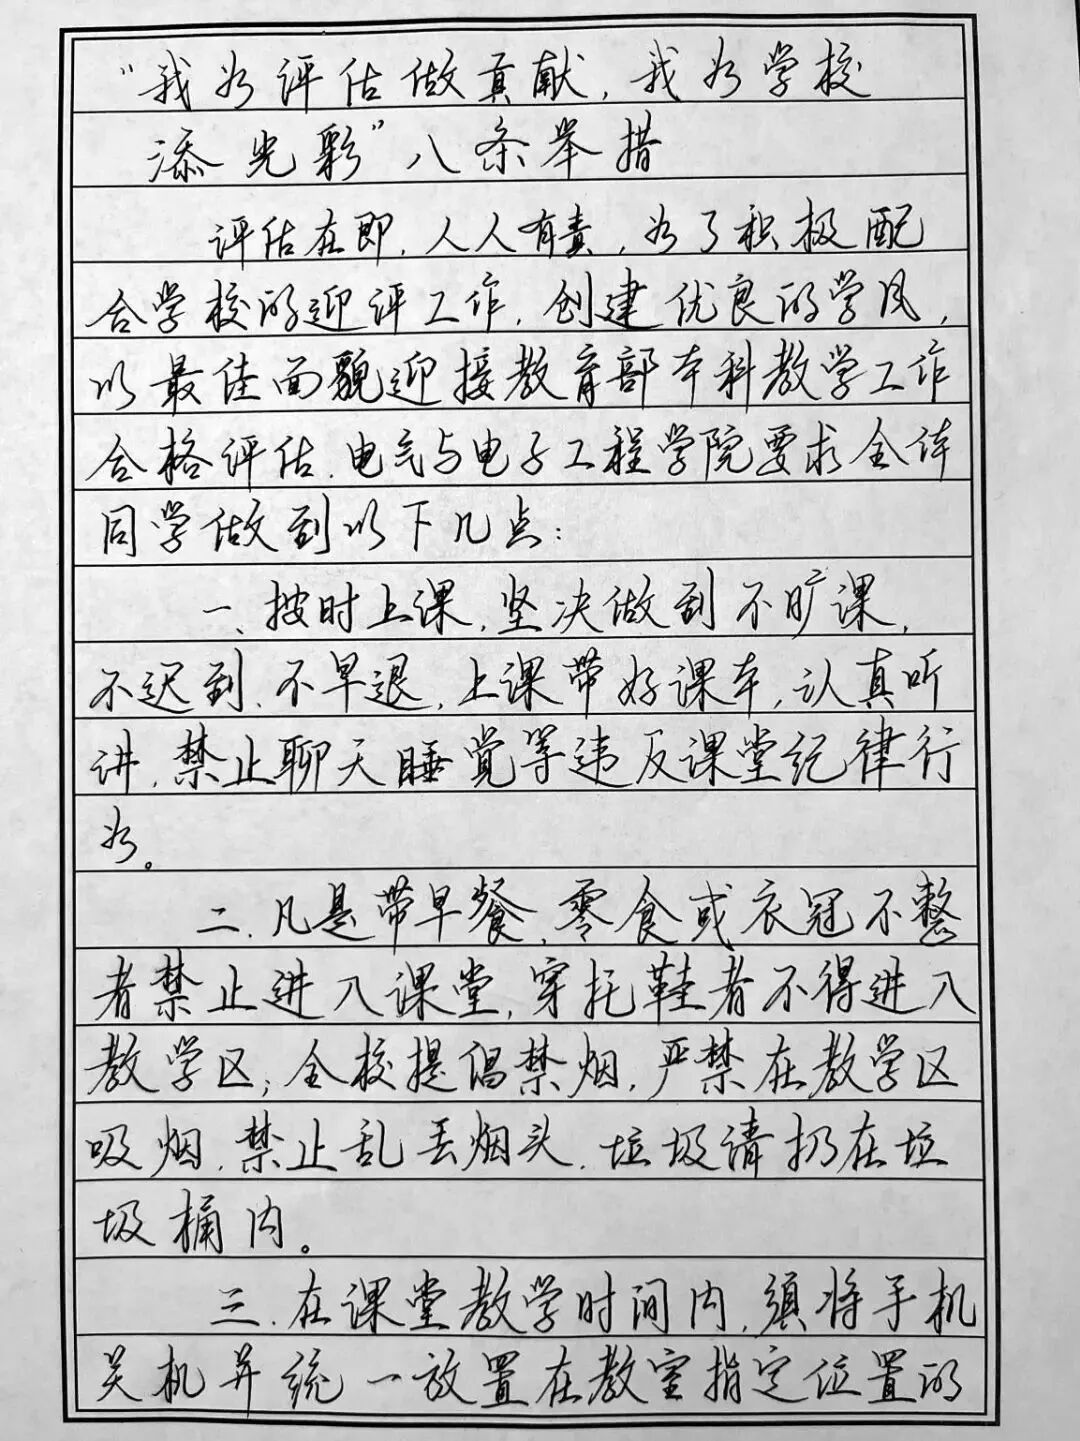 “我为评估做贡献，我为学校
添光彩”八条举措
评估在即，人人有责，为了积极配
合学校的迎评工作，创建优良的学风，
以最佳面貌迎接教育部本科教学工作
合格评估，电气与电子工程学院要求全体
同学做到以下几点：
一、按时上课，坚决做到不旷课，
不迟到、不早退，上课带好课本，认真听
讲，禁止聊天睡觉等违反课堂纪律行
为。
二、凡是带早餐、零食或衣冠不整
者禁止进入课堂，穿拖鞋者不得进入
教学区；全校提倡禁烟，严禁在教学区
吸烟，禁止乱丢烟头，垃圾请扔在垃
圾桶内。
三、在课堂教学时间内，须将手机
关机并统一放置在教室指定位置的